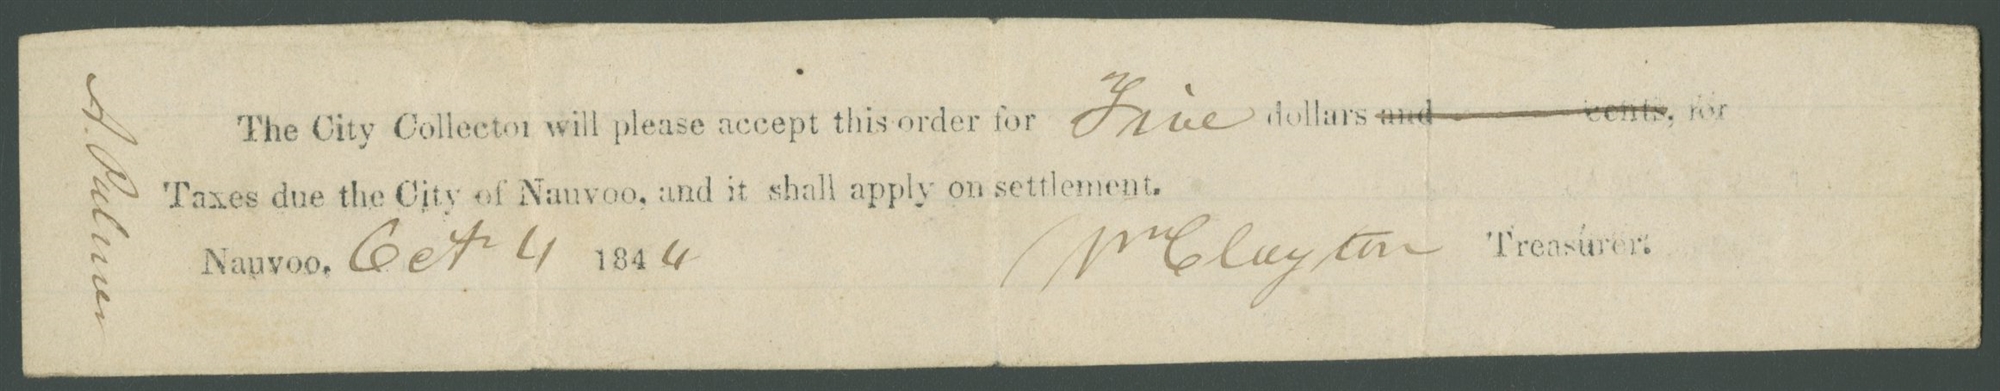 The City Collector will please accept this order for Five dollars and cents, for
Taxes due the City of Nauvoo, and it shall apply on settlement.
Nauvoo, Oct 4 1844 Wm Clayton Treasurer.
A. Palmer